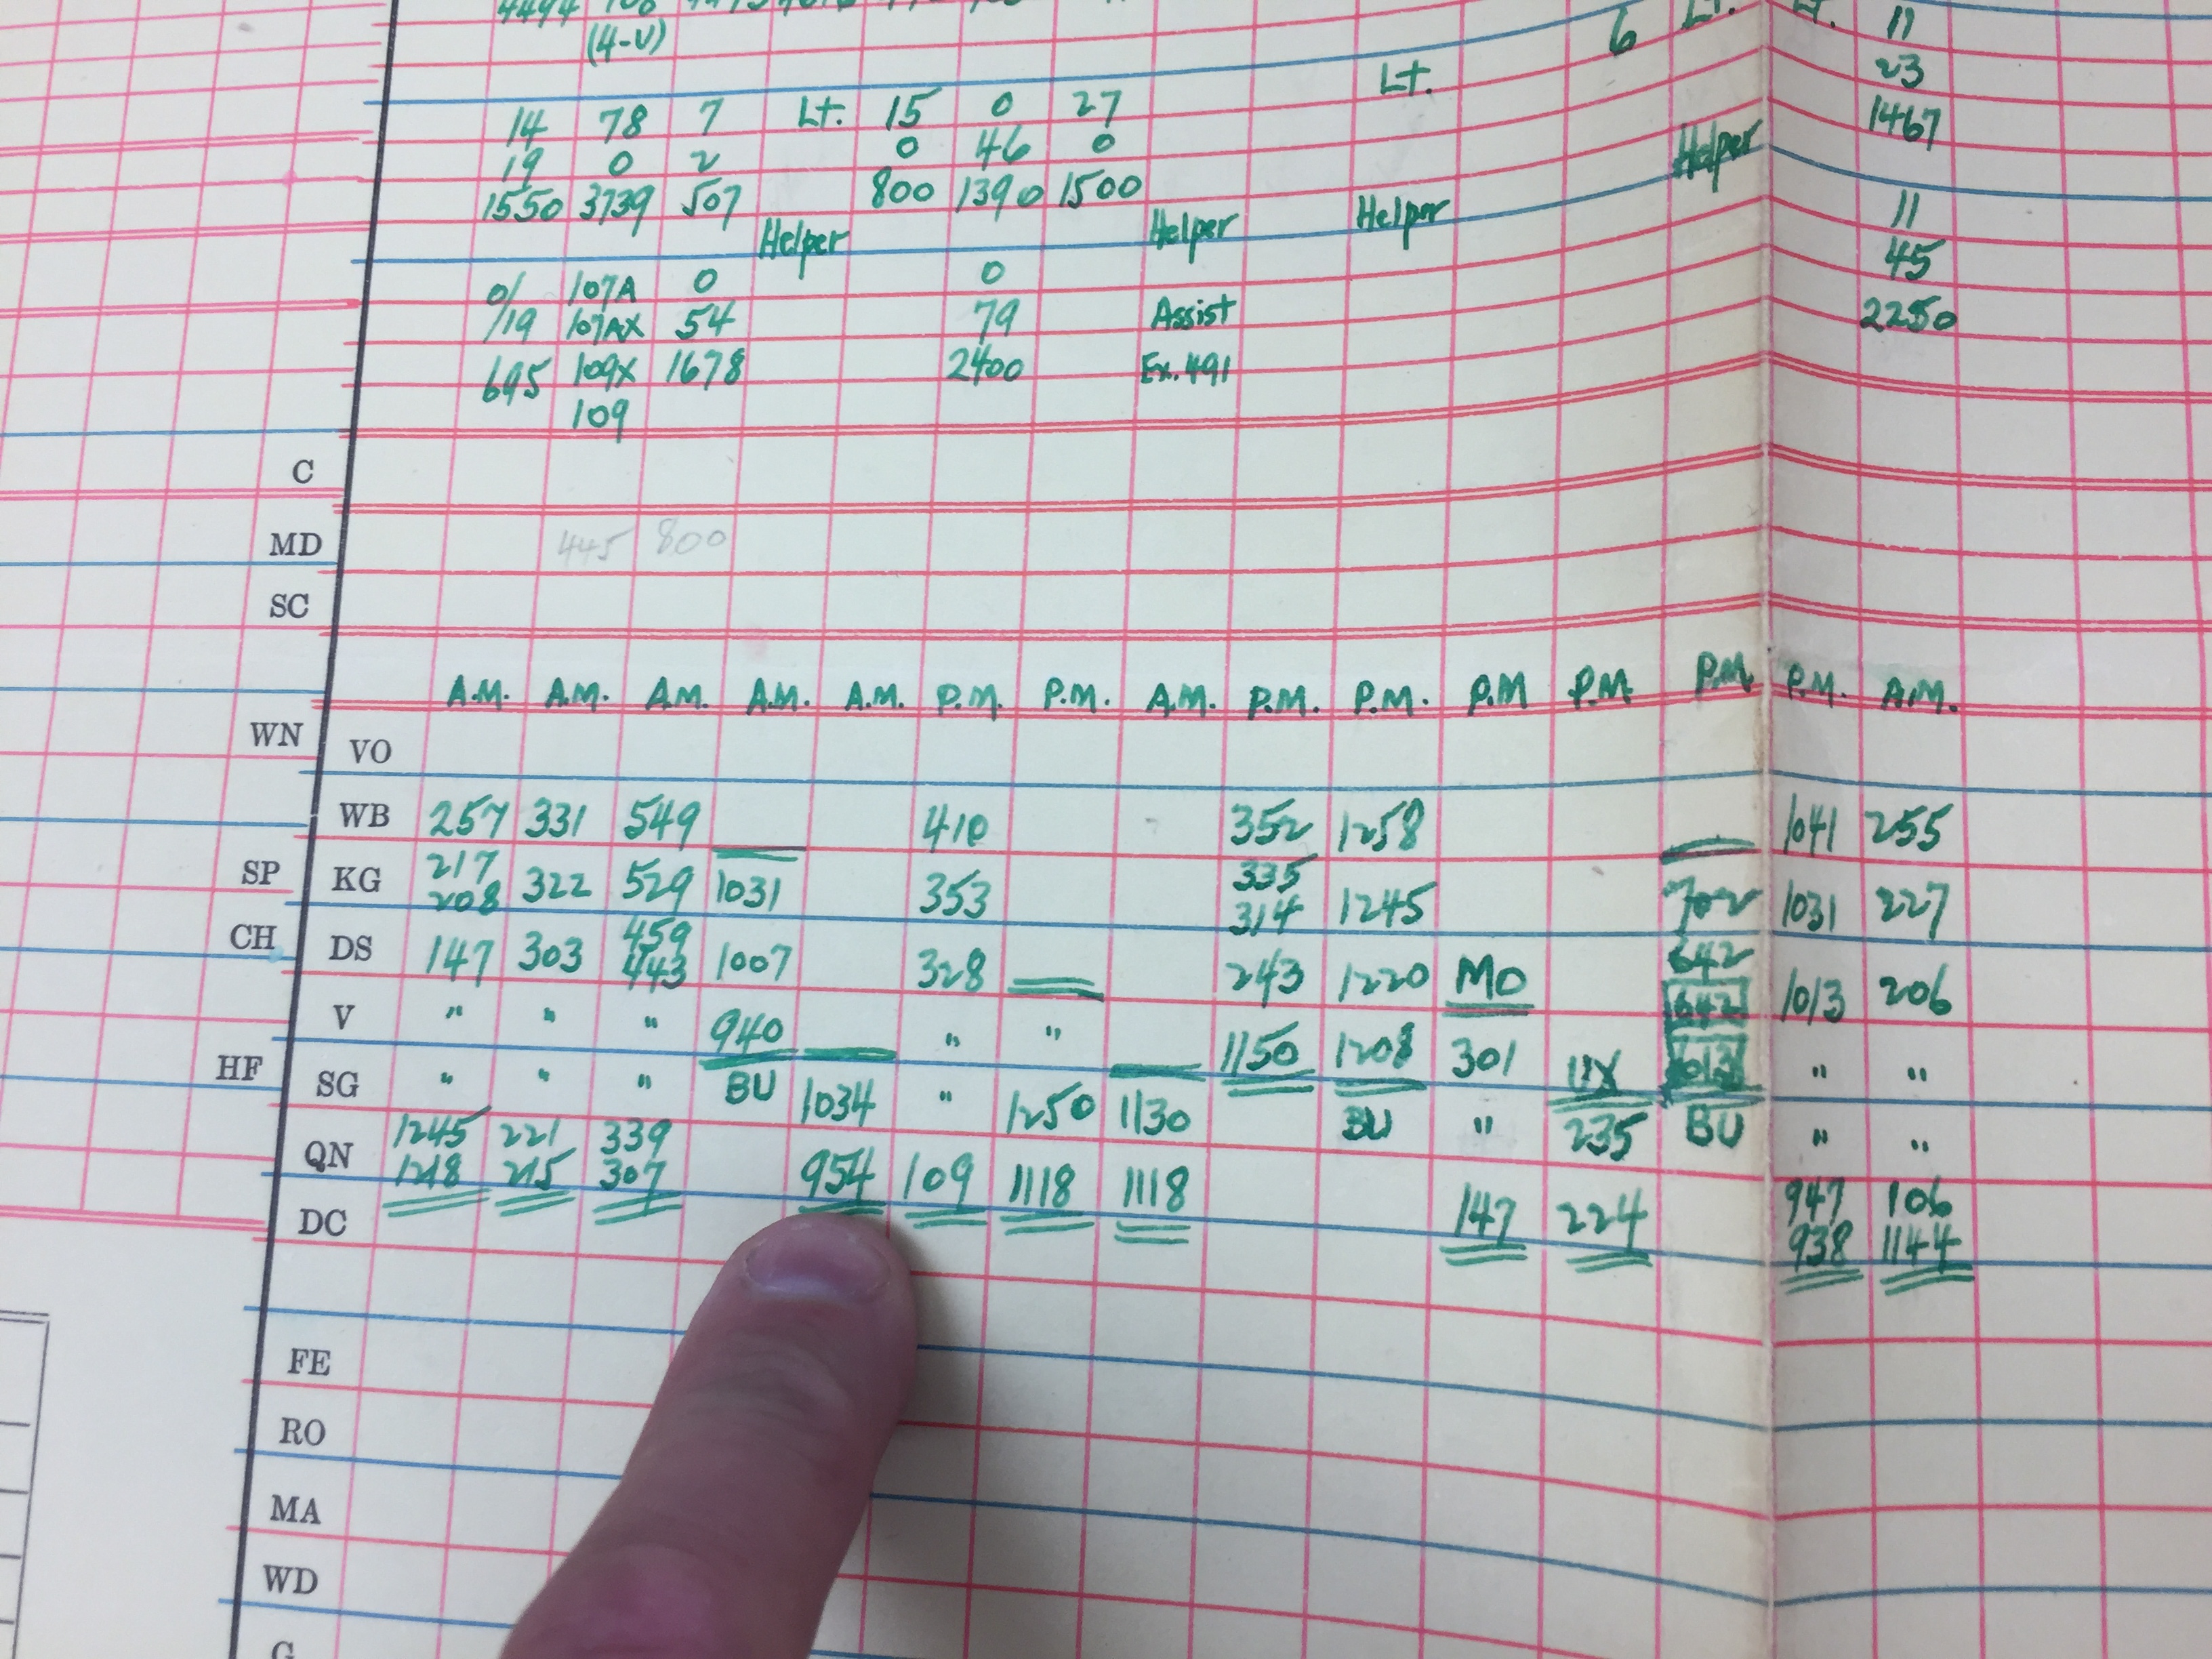 (4-V)
6 Lt. 11
Lt. 23
14 78 7 Lt. 15 0 27 1467
19 0 2 0 46 0 Helper
1550 3739 507 800 1390 1500
Helper Helper Helper 11
0/ 107A 0 0 45
/19 107AX 54 79 Assist 2250
695 109X 1678 2400 Ex. 491
109
C
MD 445 800
SC
A.M. A.M. A.M. A.M. A.M. P.M. P.M. A.M. P.M. P.M. P.M P.M P.M P.M. A.M.
WN VO
WB 257 331 549 410 352 1258 1041 255
217 335
SP KG 208 322 529 1031 353 314 1245 702 1031 227
459 642
CH DS 147 303 443 1007 328 243 1220 MO 642 1013 206
V " " " 940 " " 1150 1208 301 613 " "
HF SG " " " BU 1034 " 1250 1130 BU " 235 BU " "
1245 221 339 947 106
QN 1218 215 307 954 109 1118 1118 147 224 938 1144
DC
FE
RO
MA
WD
G